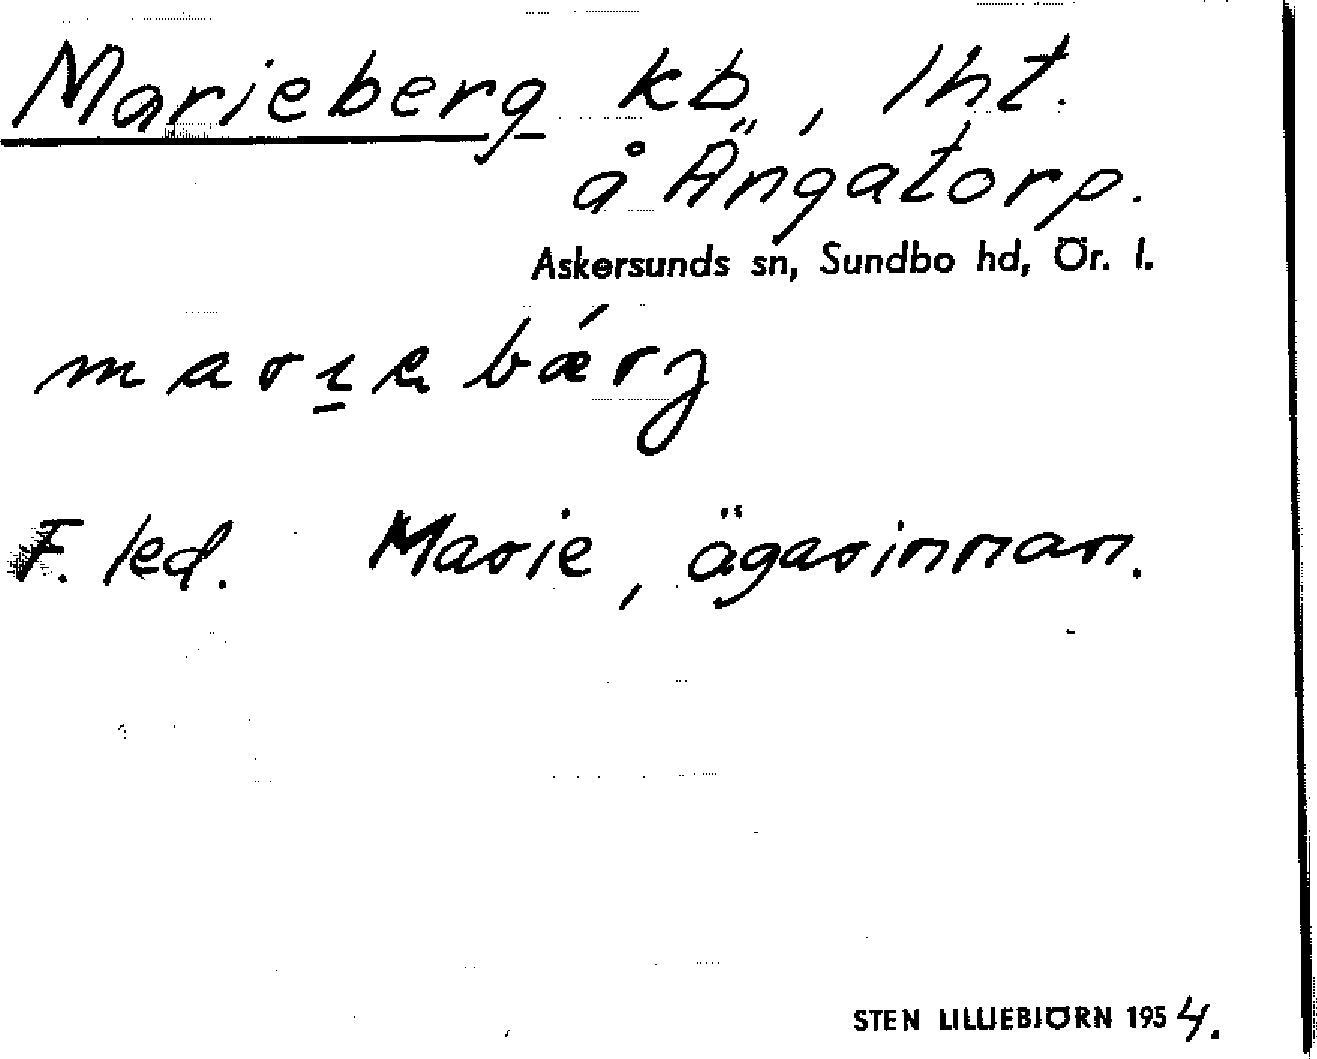 Marieberg kb, lht.
å Ängatorp.
Askersunds sn, Sundbo hd, Ör. l.
marɩebǽrj
F. led. Marie, ägarinnan.
STEN LILLIEBJÖRN 1954.